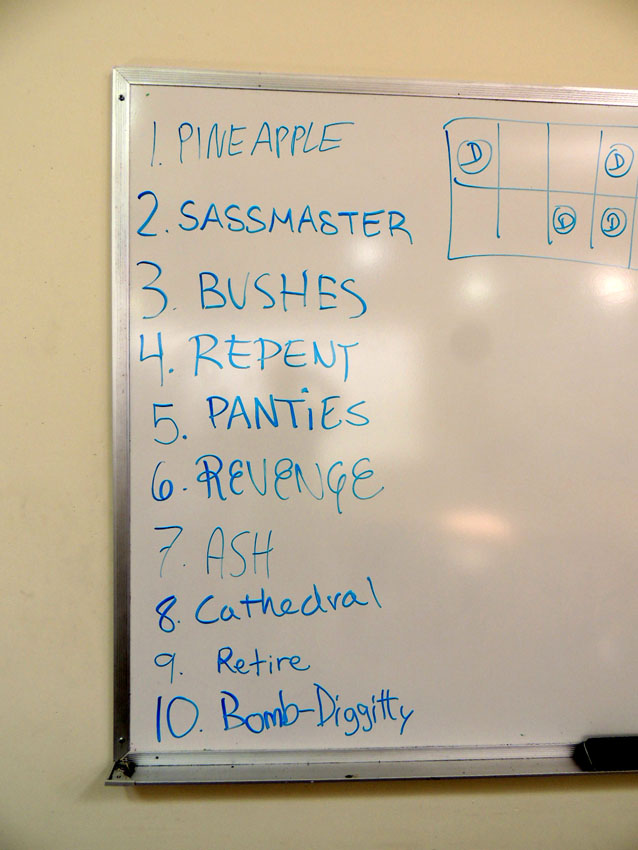 1. PINEAPPLE
2. SASSMASTER
3. BUSHES
4. REPENT
5. PANTiES
6. REVENGE
7. ASH
8. Cathedral
9. Retire
10. Bomb-Diggitty
D D
D D